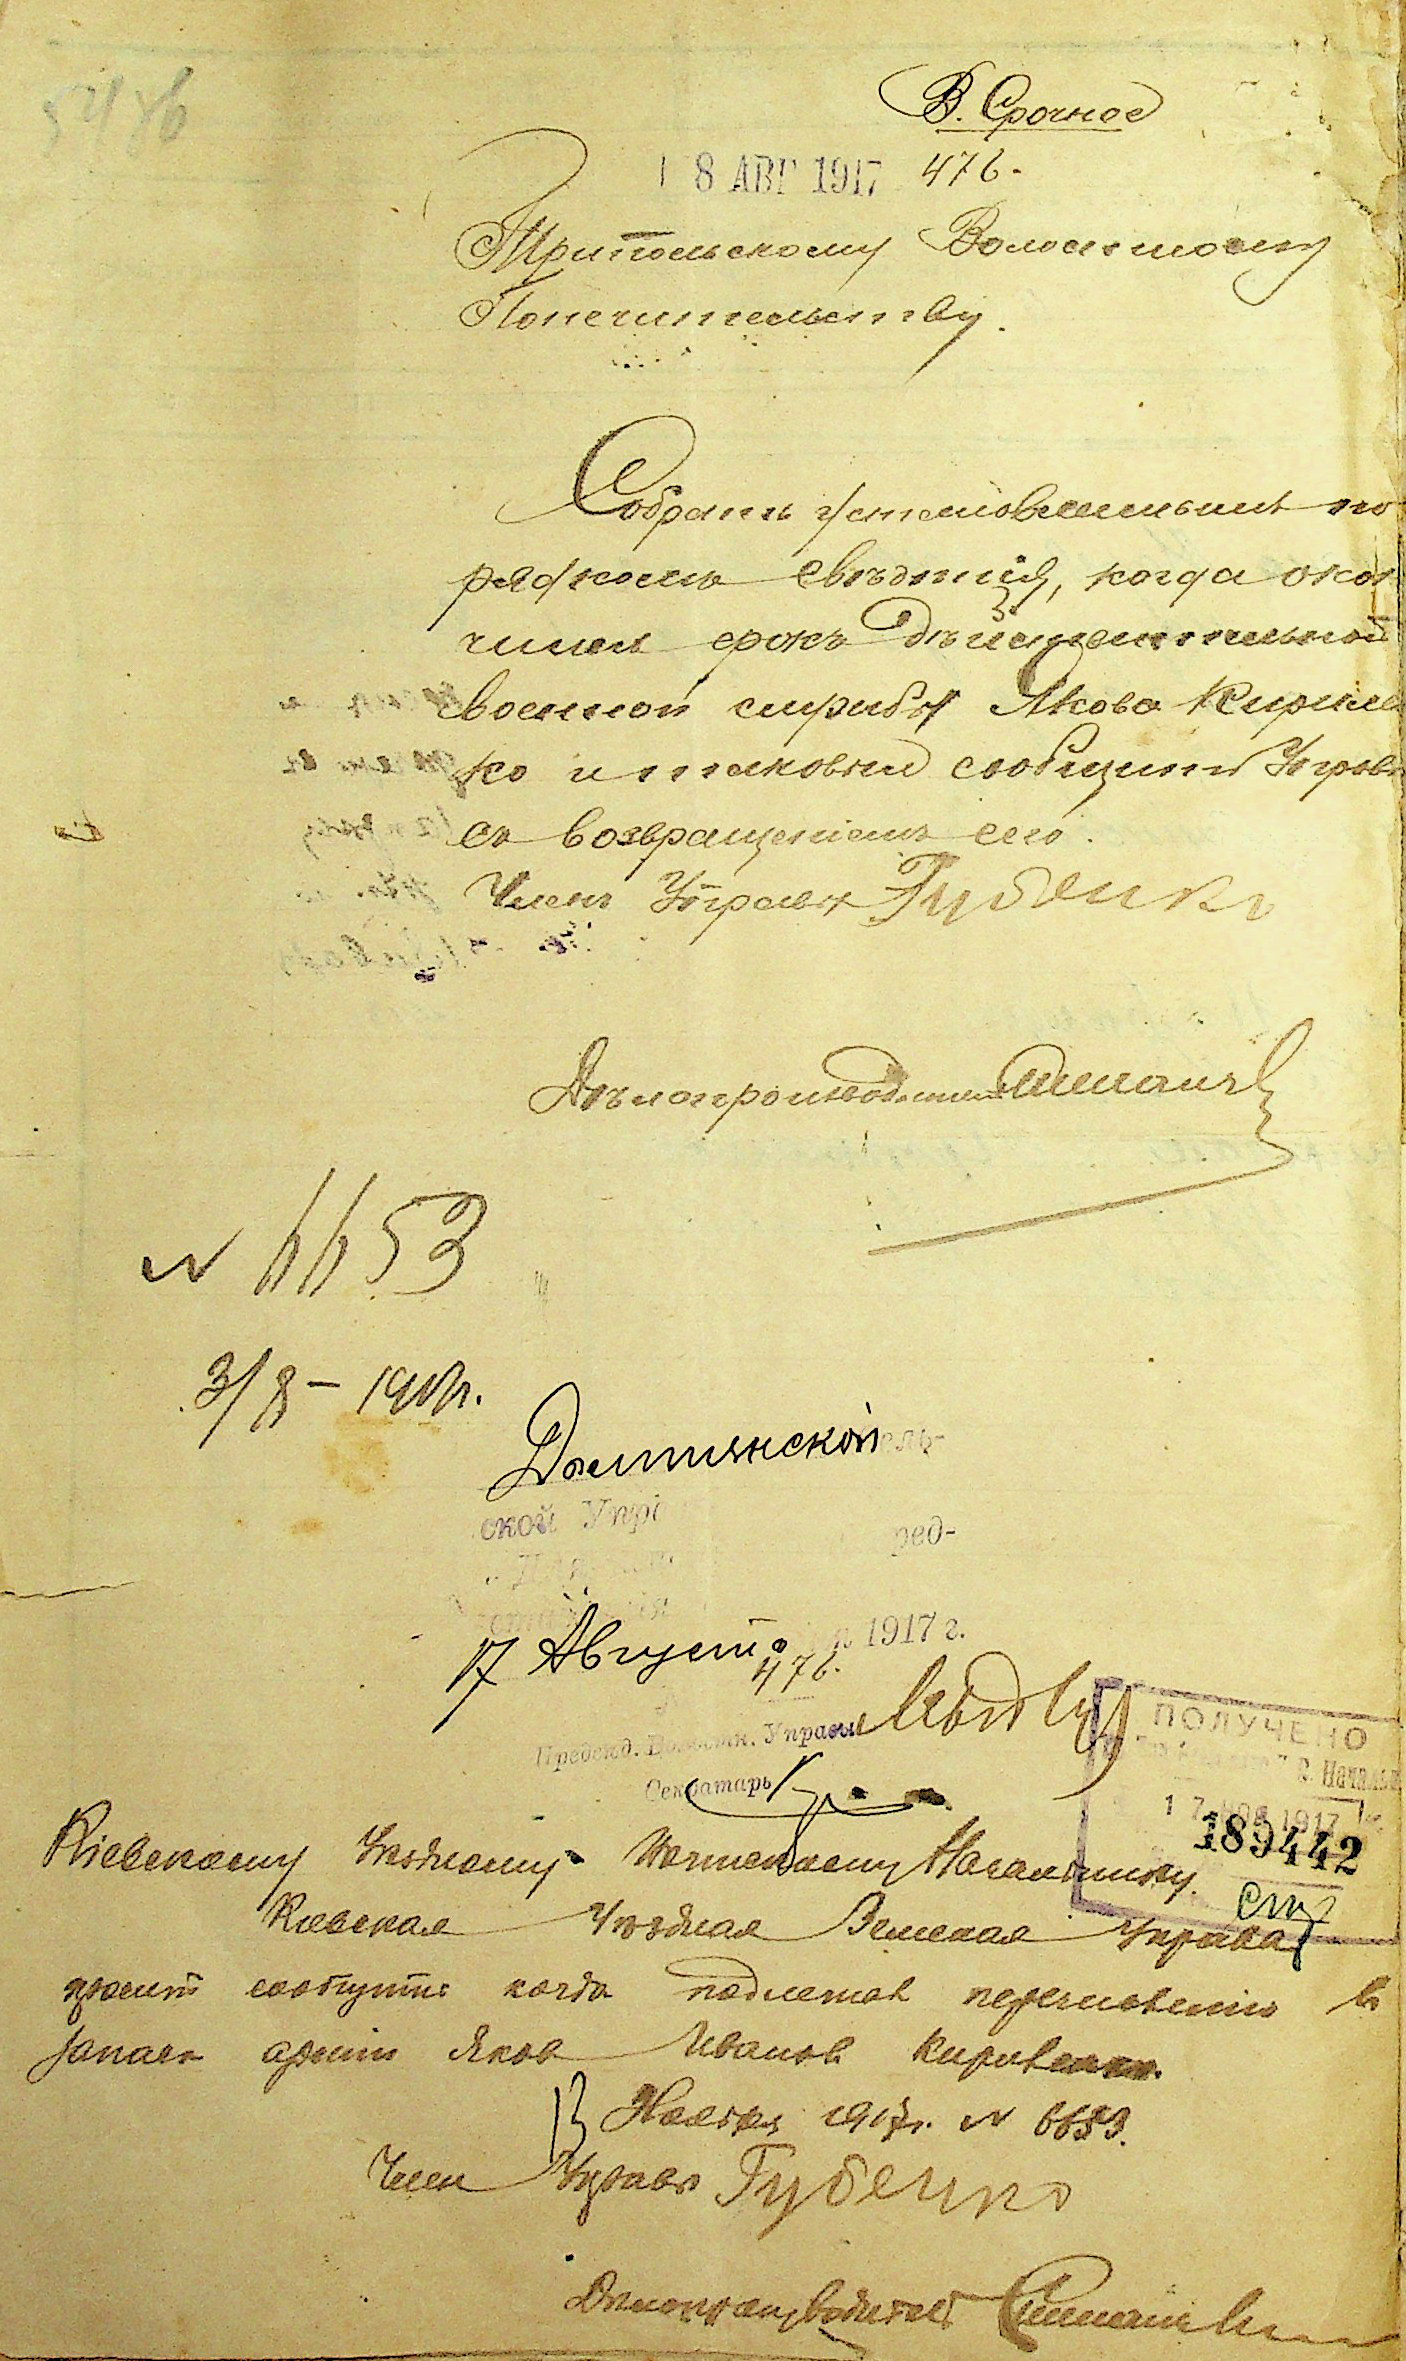 5486
В. Срочное
8 АВГ 1917 476.
Трипольскому Волостному
Попечительству.
Собрать установленнымъ по
рядкомъ свѣдѣнія, когда окон
чился срокъ дѣйствительной
военной службы Якова Кирилен
ко и таковыя сообщить Управѣ
съ возвращеніемъ сего.
Членъ Управы Губенко
Дѣлопроизводитель
N 6653
3/8 - 1917г.
ской Упр
ред-
17 Августа 1917 г.
476.
Предсѣд. Волостн. Управы
Секретарь
ПОЛУЧЕНО
В. Начальн
17 НОЯ 1917
189442
Кіевскому Уѣздному Воинскому Начальнику.
Кіевская Уѣздная Земская Управа
просит сообщить когда подлежав перечисленію в
запасъ арміи Яков Иванов
13 Ноября 1917г. N 6653.
Член Управы Губенко
Делопроизводитель